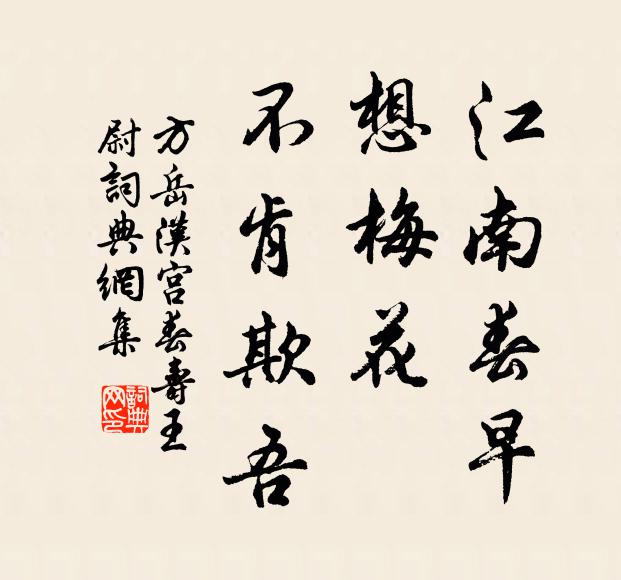 江南春早
想梅花
不肯欺吾
方岳漢宮春壽王
尉詞典網集
詞典
网印